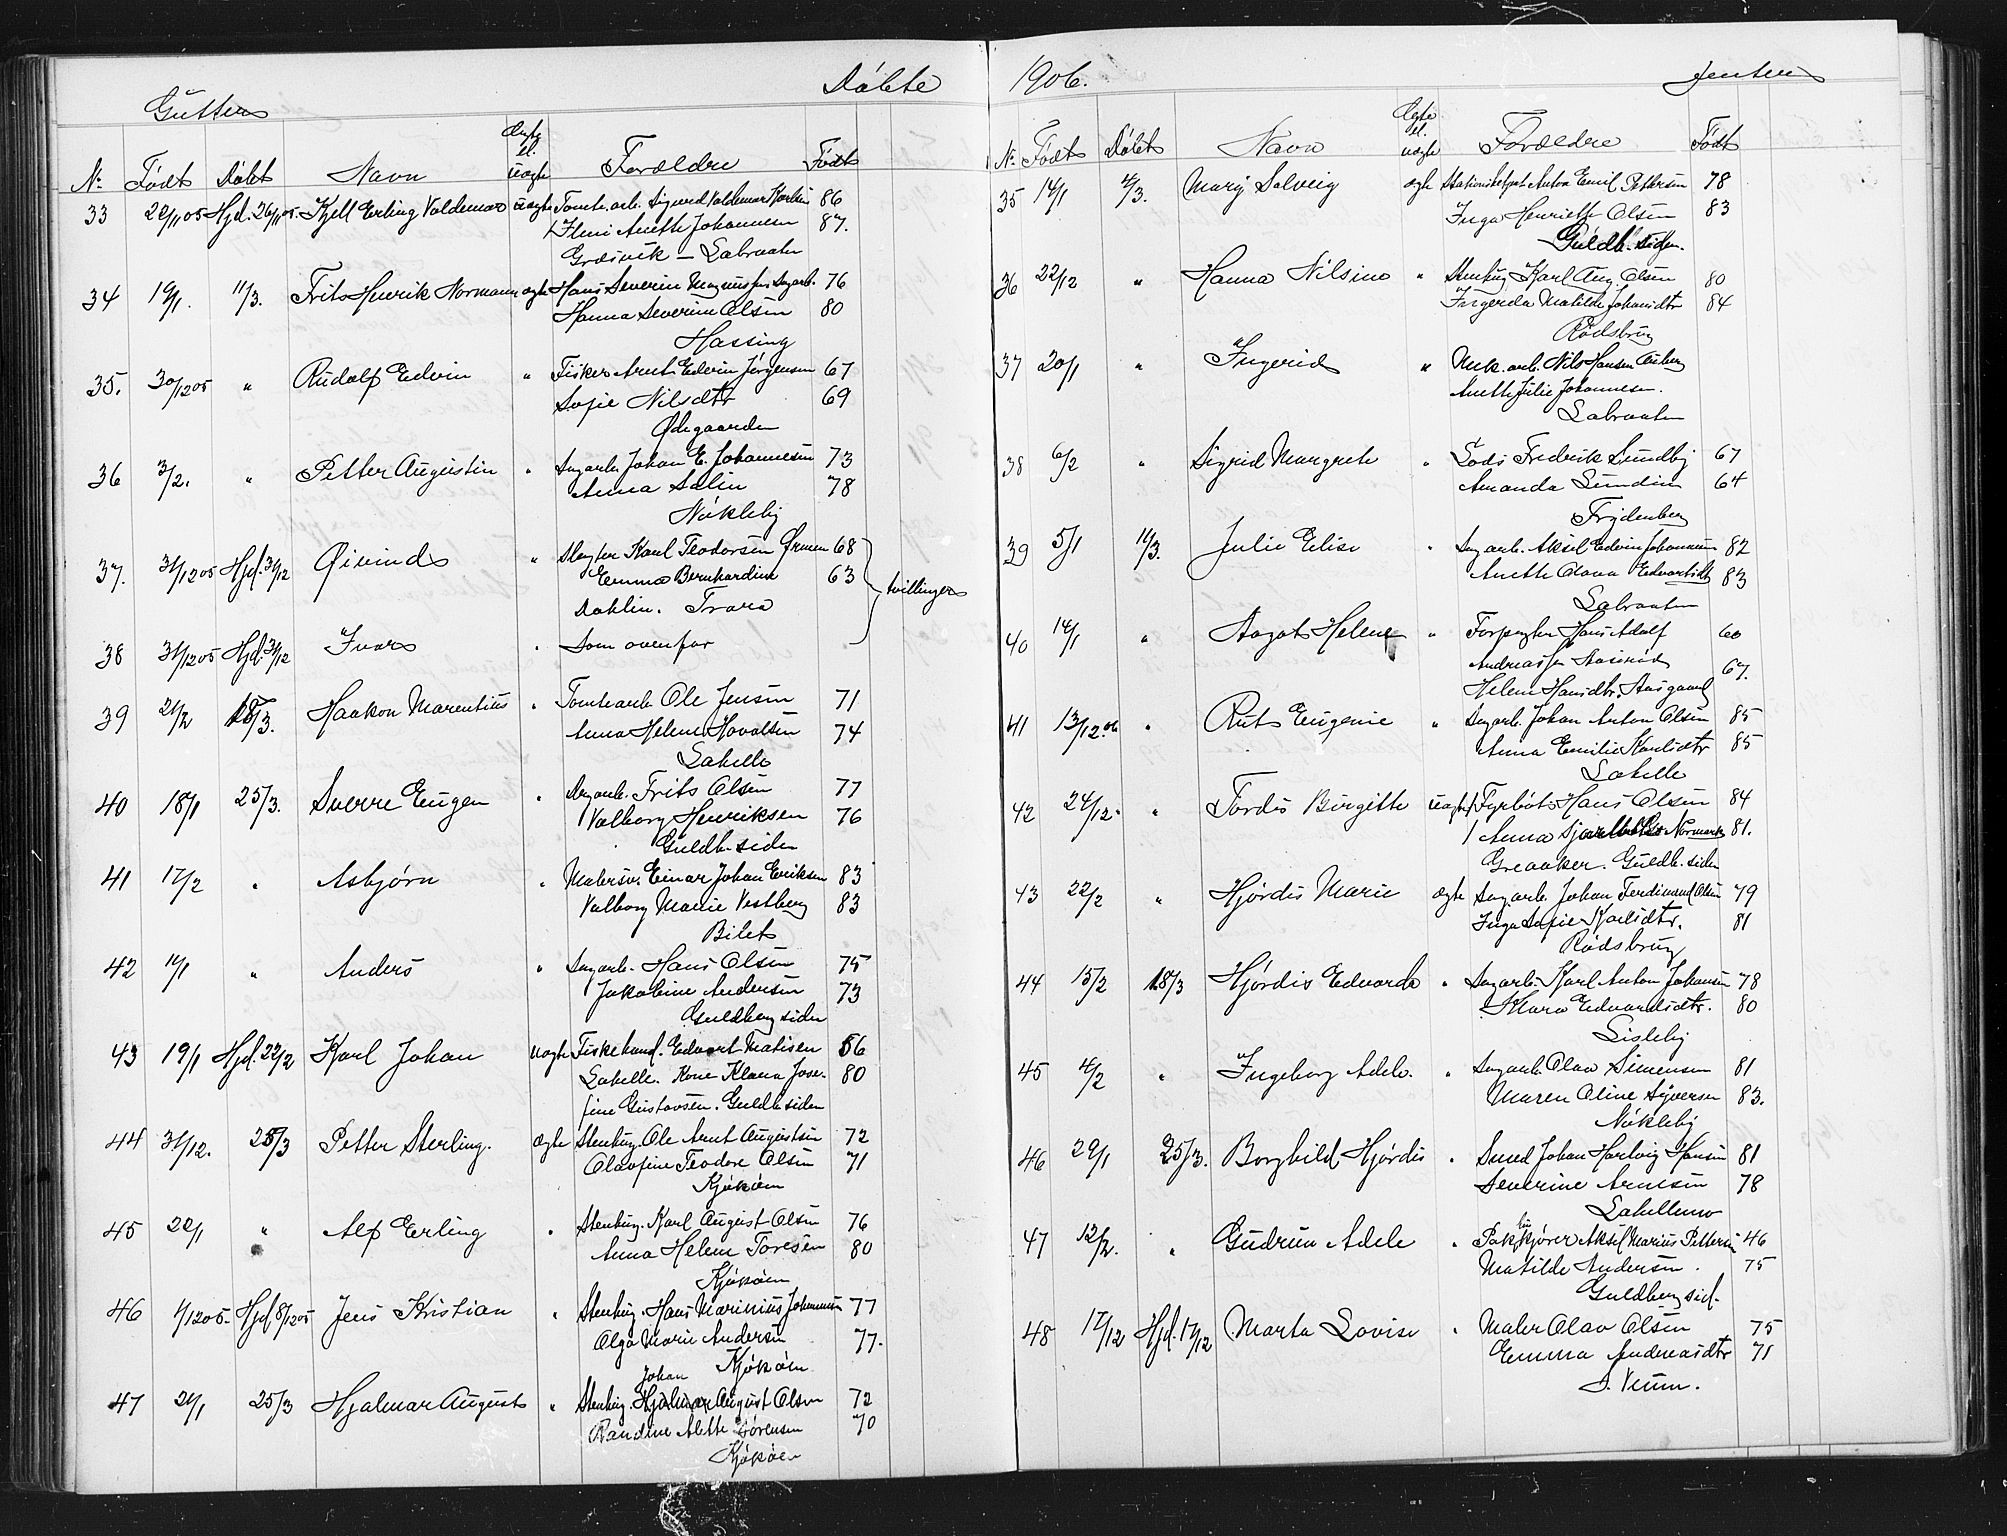 Døbte 1906.
Gutter
No Født Døbt Navn Ægte el. uægte Forældre Født
33 22/11 05 Hjd. 26/11 05 Kjell Erling Valdemar uægte Tomtearb. Sigurd Valdemar 86
Anette Johannesen 87.
Græsvik — Labraaten
34 19/1. 11/3. Frits Henrik Normann ægte Hans Severin Magnussen Sagarb. 76
Hanna Severine Olsen 80
Hassing
35. 30/12 05 " Rudolf Edvin " Fisker Arnt Edvin Jørgensen 67
Sofie Nilsdtr 69
Ødegaarden
36 3/2. " Petter Augustin " Sagarb. Johan E. Johannesen 73
Anna Dalin 78
Nøkleby
37. 31/12 05 Hjd. 31/12 Øivind " Slagter Karl Teodorsen Ørmen 68
Emma Bernhardine 63 tvillinger
Dahlin. Trara
38 31/12 05 Hjd. 31/12 Ivar " Som ovenfor
39 21/2 18/3. Haakon Marentius " Tomtearb. Ole Jensen 71
Anna Helene Hovalsen 74
Lahelle
40 18/1 25/3. Sverre Eugen " Sagarb. Frits Olsen 77
Valborg Henriksen 76
Guldb. siden
41 17/2 " Asbjørn " Malersv. Einar Johan Eriksen 83
Valborg Marie Vestberg 83
Bilet
42 11/1 " Anders " Sagarb. Hans Olsen 75
Jakobine Andersen 73
Guldberg siden
43 19/1 Hjd. 22/2 Karl Johan uægte Fiskehand. Edvart Matisen 56
Lahelle. Kone Klara Jose- 80
fine Gustavsen. Guldb. siden
44 31/12. 25/3 Petter Sterling. ægte Stenhug. Ole Arnt Augustsen 72
Olavfine Teodore Olsen 71
Kjøkøen
45 22/1 " Alf Erling " Stenhug. Karl August Olsen 76
Anna Helene Toresen 80
Kjøkøen
46 1/12 05. Hjd 8/12 05 Jens Kristian " Stenhug. Hans Marinius Johannesen 77
Olga Marie Andersen 77.
Kjøkøen
Johan
47 21/1 25/3 Hjalmar August " Stenhug. Hjalmar August Olsen 72
Randine Alette Sørensen 70
Kjøkøen
Jenter
No. Født Døbt Navn Ægte el. uægte Forældre Født
35 14/1 4/3. Mary Solveig ægte Anton Emil Pettersen 78
Inga Henriette Olsen 83
Guldb. siden.
36 22/12 " Hanna Nilsine " Stenhug. Karl Aug. Olsen 80
Ingerda Matilde Johansdtr 84
Rødsbrug
37 20/1 " Ingerid " Mek. arb. Nils Hansen Anker
Anette Julie Johannesen.
Labraaten
38 6/2 " Sigrid Margrete " Lods Fredrik Sundby 67
Amanda Sundin 64
Frydenberg
39 5/1 11/3. Julie Elise " Sagarb. Aksel Edvin Johannesen 82
Anette Olava Edvartsdtr 83
Labraaten
40 14/1 " Aagot Helene " Forpagter Hans Adolf 60
Andreassen
Helene Hansdtr. Aasgaard 67.
41 13/12.06 " Rut Eugenie " Sagarb. Johan Anton Olsen 85
Anna Emilie Karlsdtr 85
Lahelle
42 24/12. " Tordis Birgitte uægte Fyrbøt. Hans Olsen 84
Anna Normark 81.
Greaaker. Guldb. siden
43 22/2 " Hjørdis Marie ægte Sagarb. Johan Ferdinand Olsen 79
Inga Sofie Karlsdtr. 81
Rødsbrug
44 15/2 18/3 Hjørdis Edvarda " Sagarb. Karl Anton Johansen 78
Mara Edvardsdtr. 80
Lisleby
45 4/2 " Ingeborg Adele. " Sagarb. Olav Simensen 81
Maren Oline Syversen 83.
Nøkleby
46 29/1 25/3. Borghild Hjørdis " Smed Johan Hartvig Hansen 81
Severine Arnesen 78
Lahellemo
47 12/2. " Gudrun Adele " Aksel Marius Pettersen 46
Matilde Andersen. 75
Guldberg sid.
48 17/12 Hjd. 17/12 Marta Lovise " Maler Olav Olsen 75
Emma Andreasdtr 71
S. Veum.